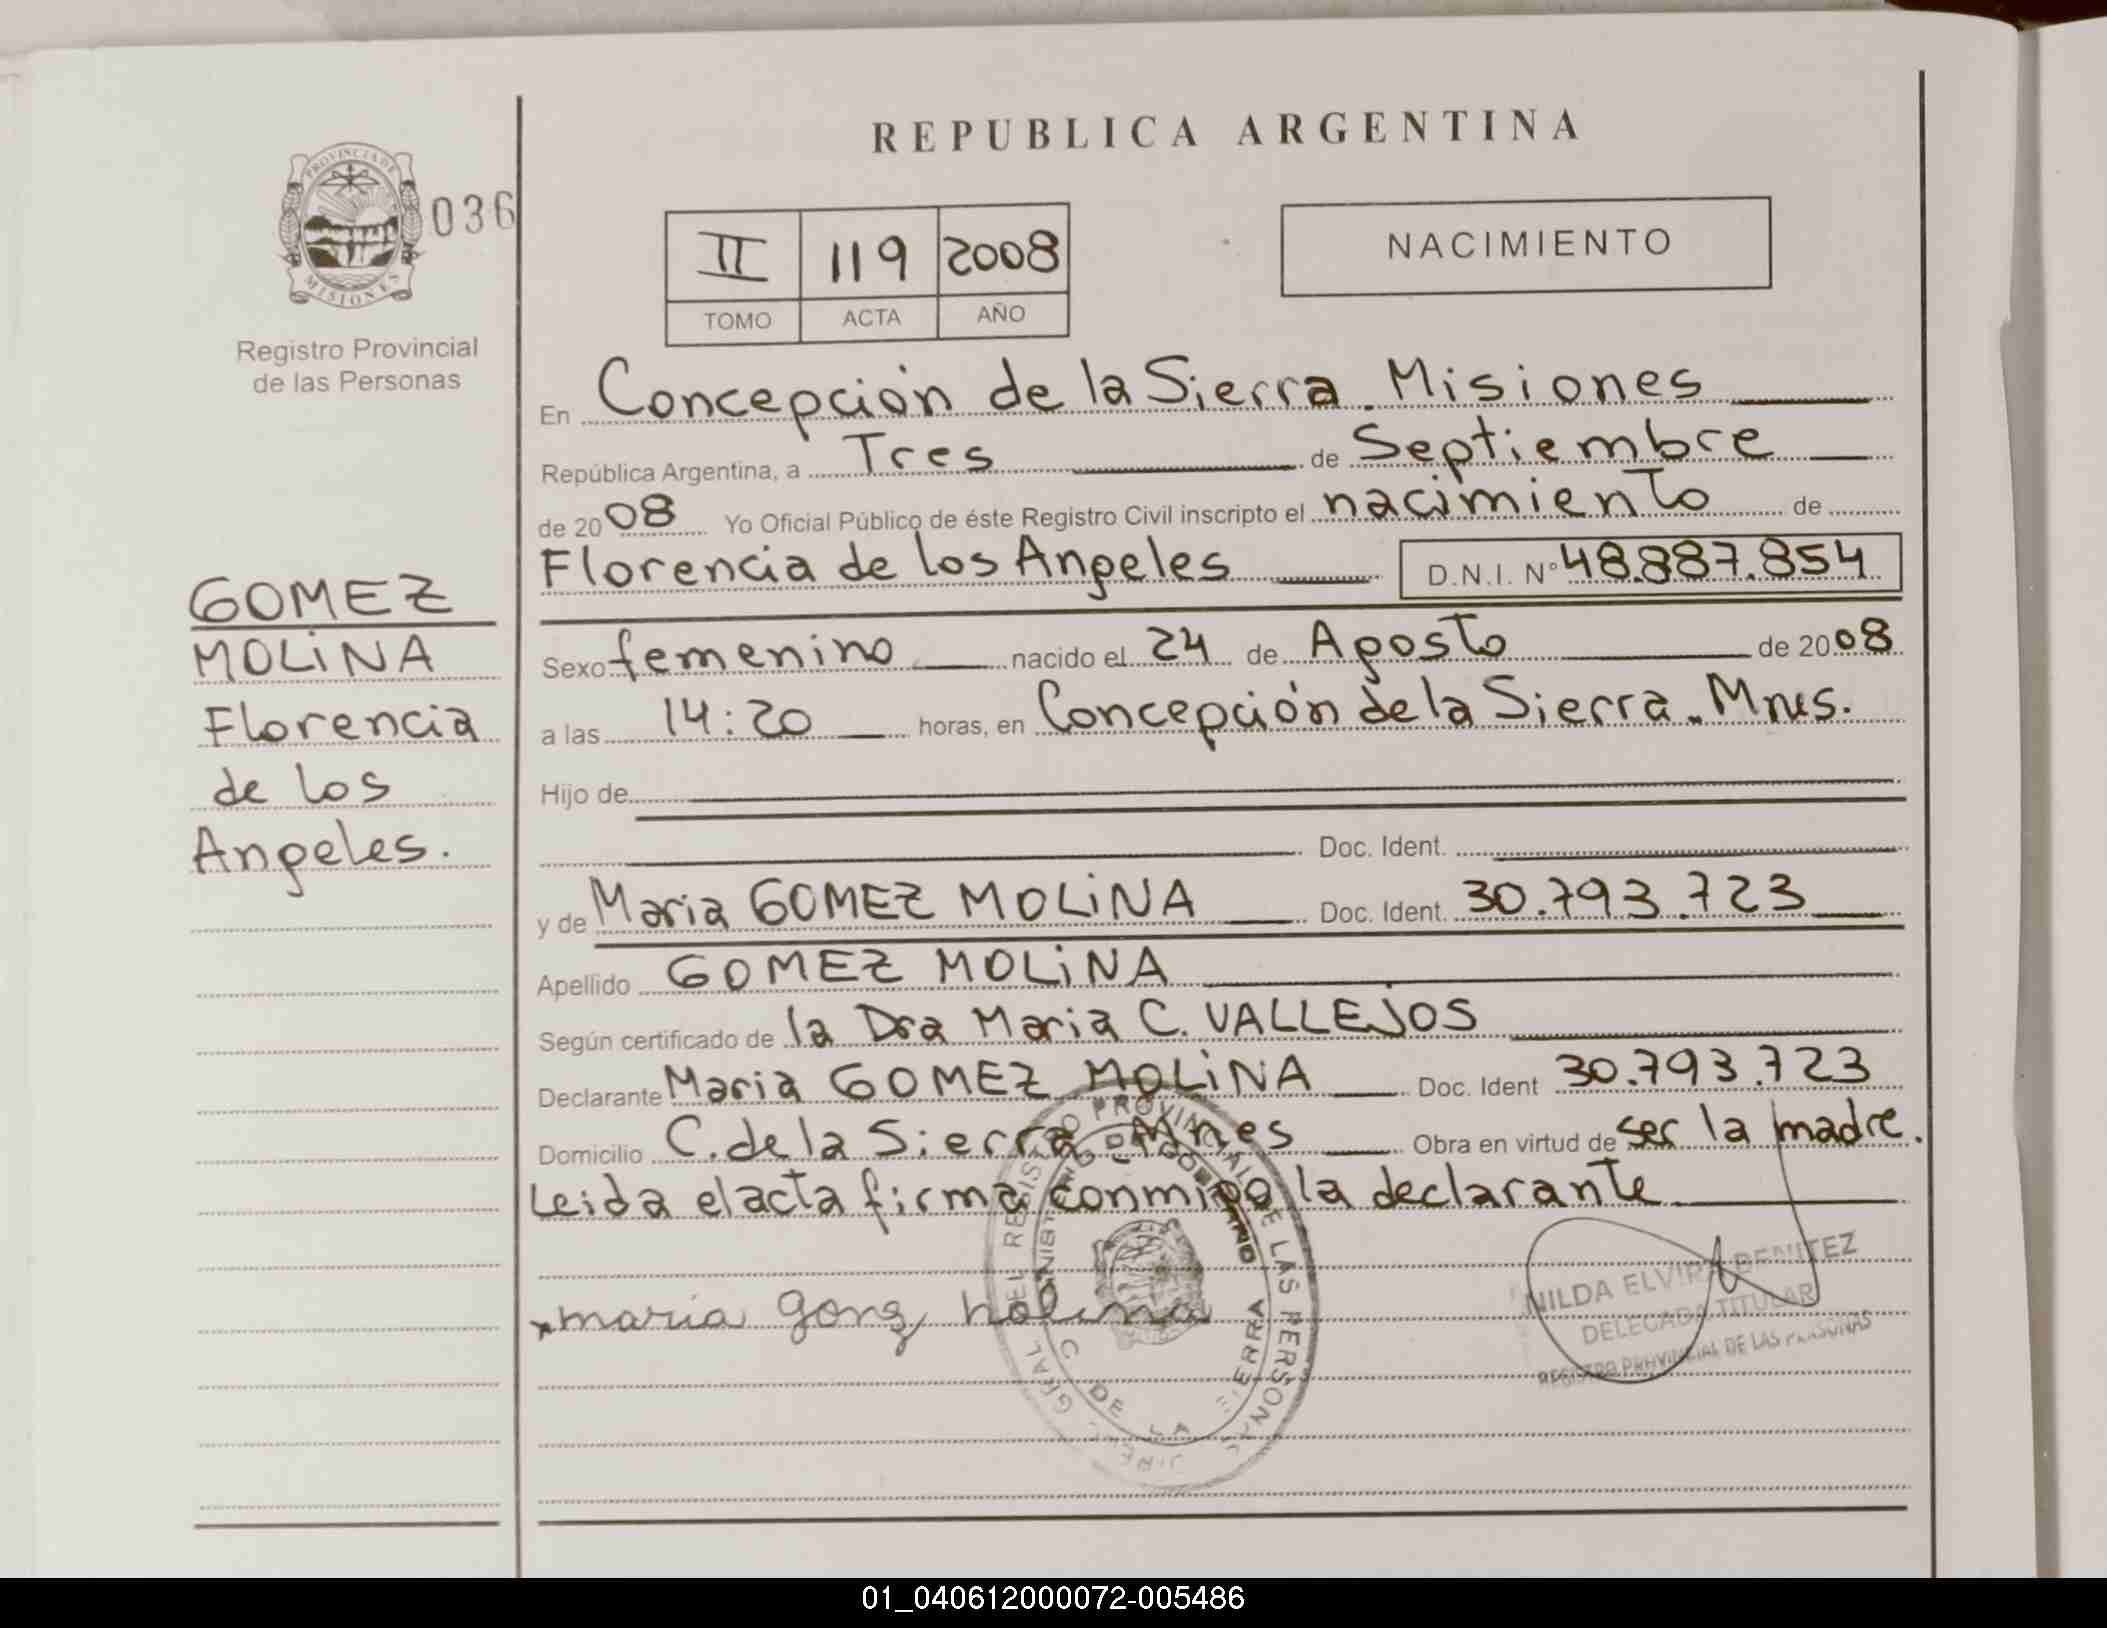 REPUBLICA ARGENTINA
PROVINCIA DE
MISIONES
036
Registro Provincial
de las Personas
II 119 2008
TOMO ACTA AÑO
NACIMIENTO
GOMEZ
MOLINA
Florencia
de los
Angeles.
En Concepción de la Sierra. Misiones
República Argentina, a Tres de Septiembre
de 2008 Yo Oficial Público de éste Registro Civil inscripto el nacimiento de
Florencia de los Angeles D.N.I. N° 48.887.854
Sexo femenino nacido el 24 de Agosto de 2008
a las 14:20 horas, en Concepción de la Sierra. Mnes.
Hijo de
Doc. Ident.
y de Maria GOMEZ MOLINA Doc. Ident. 30.793.723
Apellido GOMEZ MOLINA
Según certificado de la Dra Maria C. VALLEJOS
Declarante Maria GOMEZ MOLINA Doc. Ident 30.793.723
Domicilio C. de la Sierra Mnes Obra en virtud de ser la madre.
Leida el acta firma conmigo la declarante
maria gomz
NILDA ELVIRA BENITEZ
DELEGADA TITULAR
REGISTRO PROVINCIAL DE LAS PERSONAS
GRAL DEL REGISTRO PROVINCIAL DE LAS PERSONAS
C DE LA SIERRA
01_040612000072-005486